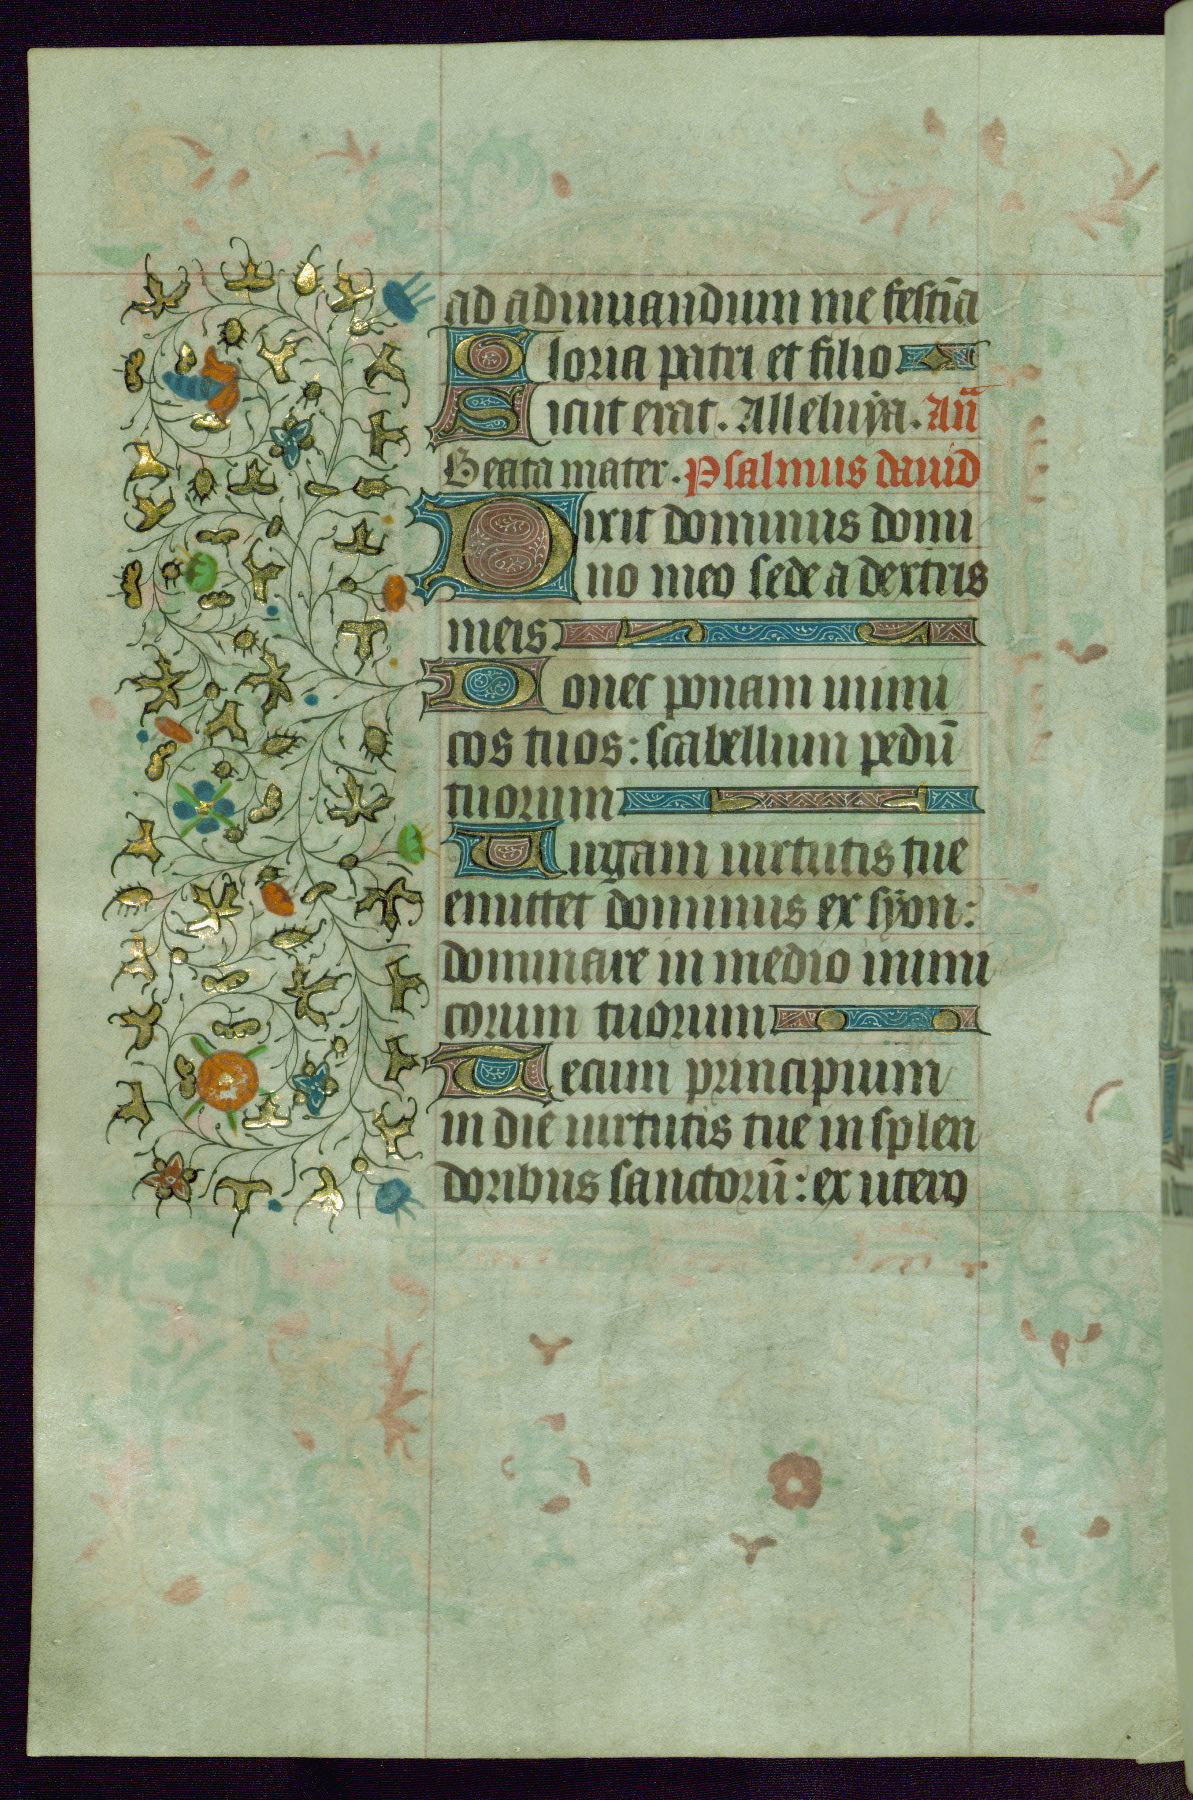 ad adiuuandum me festīa
Gloria patri et filio
Sicut erat. Alleluya. An̄
Beata mater. Psalmus dauid
Dixit dominus domi
no meo sede a dextris
meis
Donec ponam inimi
cos tuos: scabellum pedū
tuorum
Uirgam uirtutis tue
emittet dominus ex syon:
dominare in medio inimi
corum tuorum
Tecum principium
in die uirtutis tue in splen
doribus sanctorū: ex utero